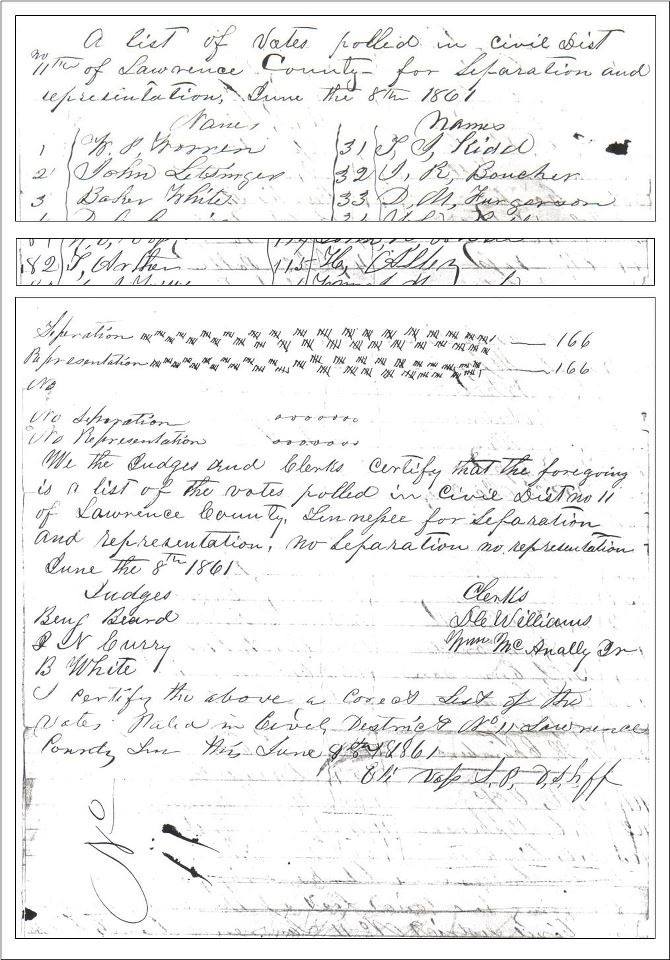 A list of Votes polled in civil Dist
no 11th of Lawrence County for Separation and
representation, June the 8th 1861
Names Names
1 W. P. Worren 31 T. J. Kidd
2 John Letsinger 32 J. R. Boucher
3 Baker White 33 D. M. Furgerson
82 T, Arthen 115 H, Allen
Seperation 166
Representation 166
No
No Separation ooooooo
No Representation ooooooo
We the Judges and Clerks certify that the foregoing
is a list of the votes polled in civil Dist no 11
of Lawrence County, Tinnessee for Separation
and representation, no Separation no representation
June the 8th 1861
Judges Clerks
Benj Beard D le Williams
J N Curry Wm McAnally Jr
B White
I certify the above a Corect List of the
votes in Civil District No 11 Lawrence
County Tnn this June 1861
Eli D, Shff
No 11